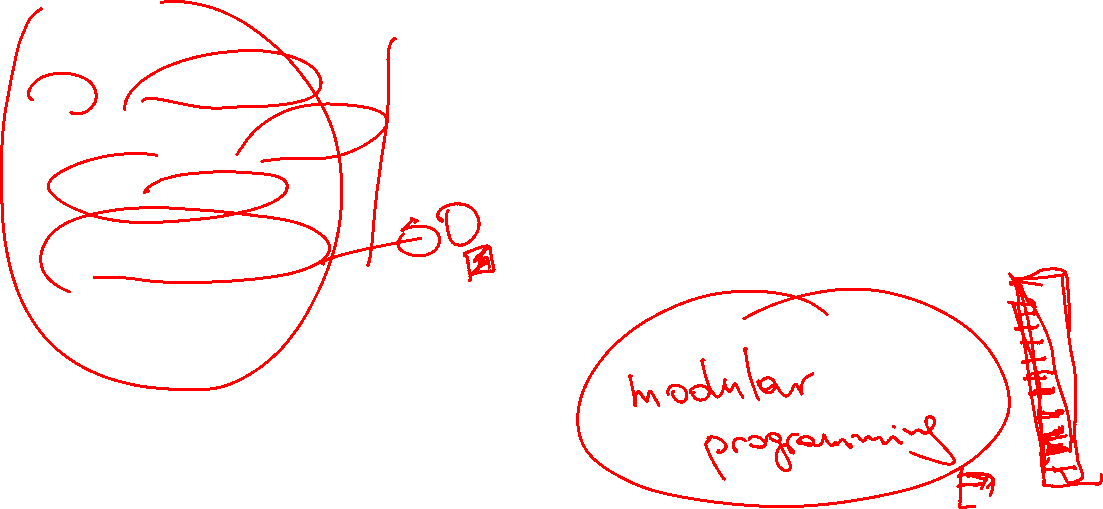 modular
programming